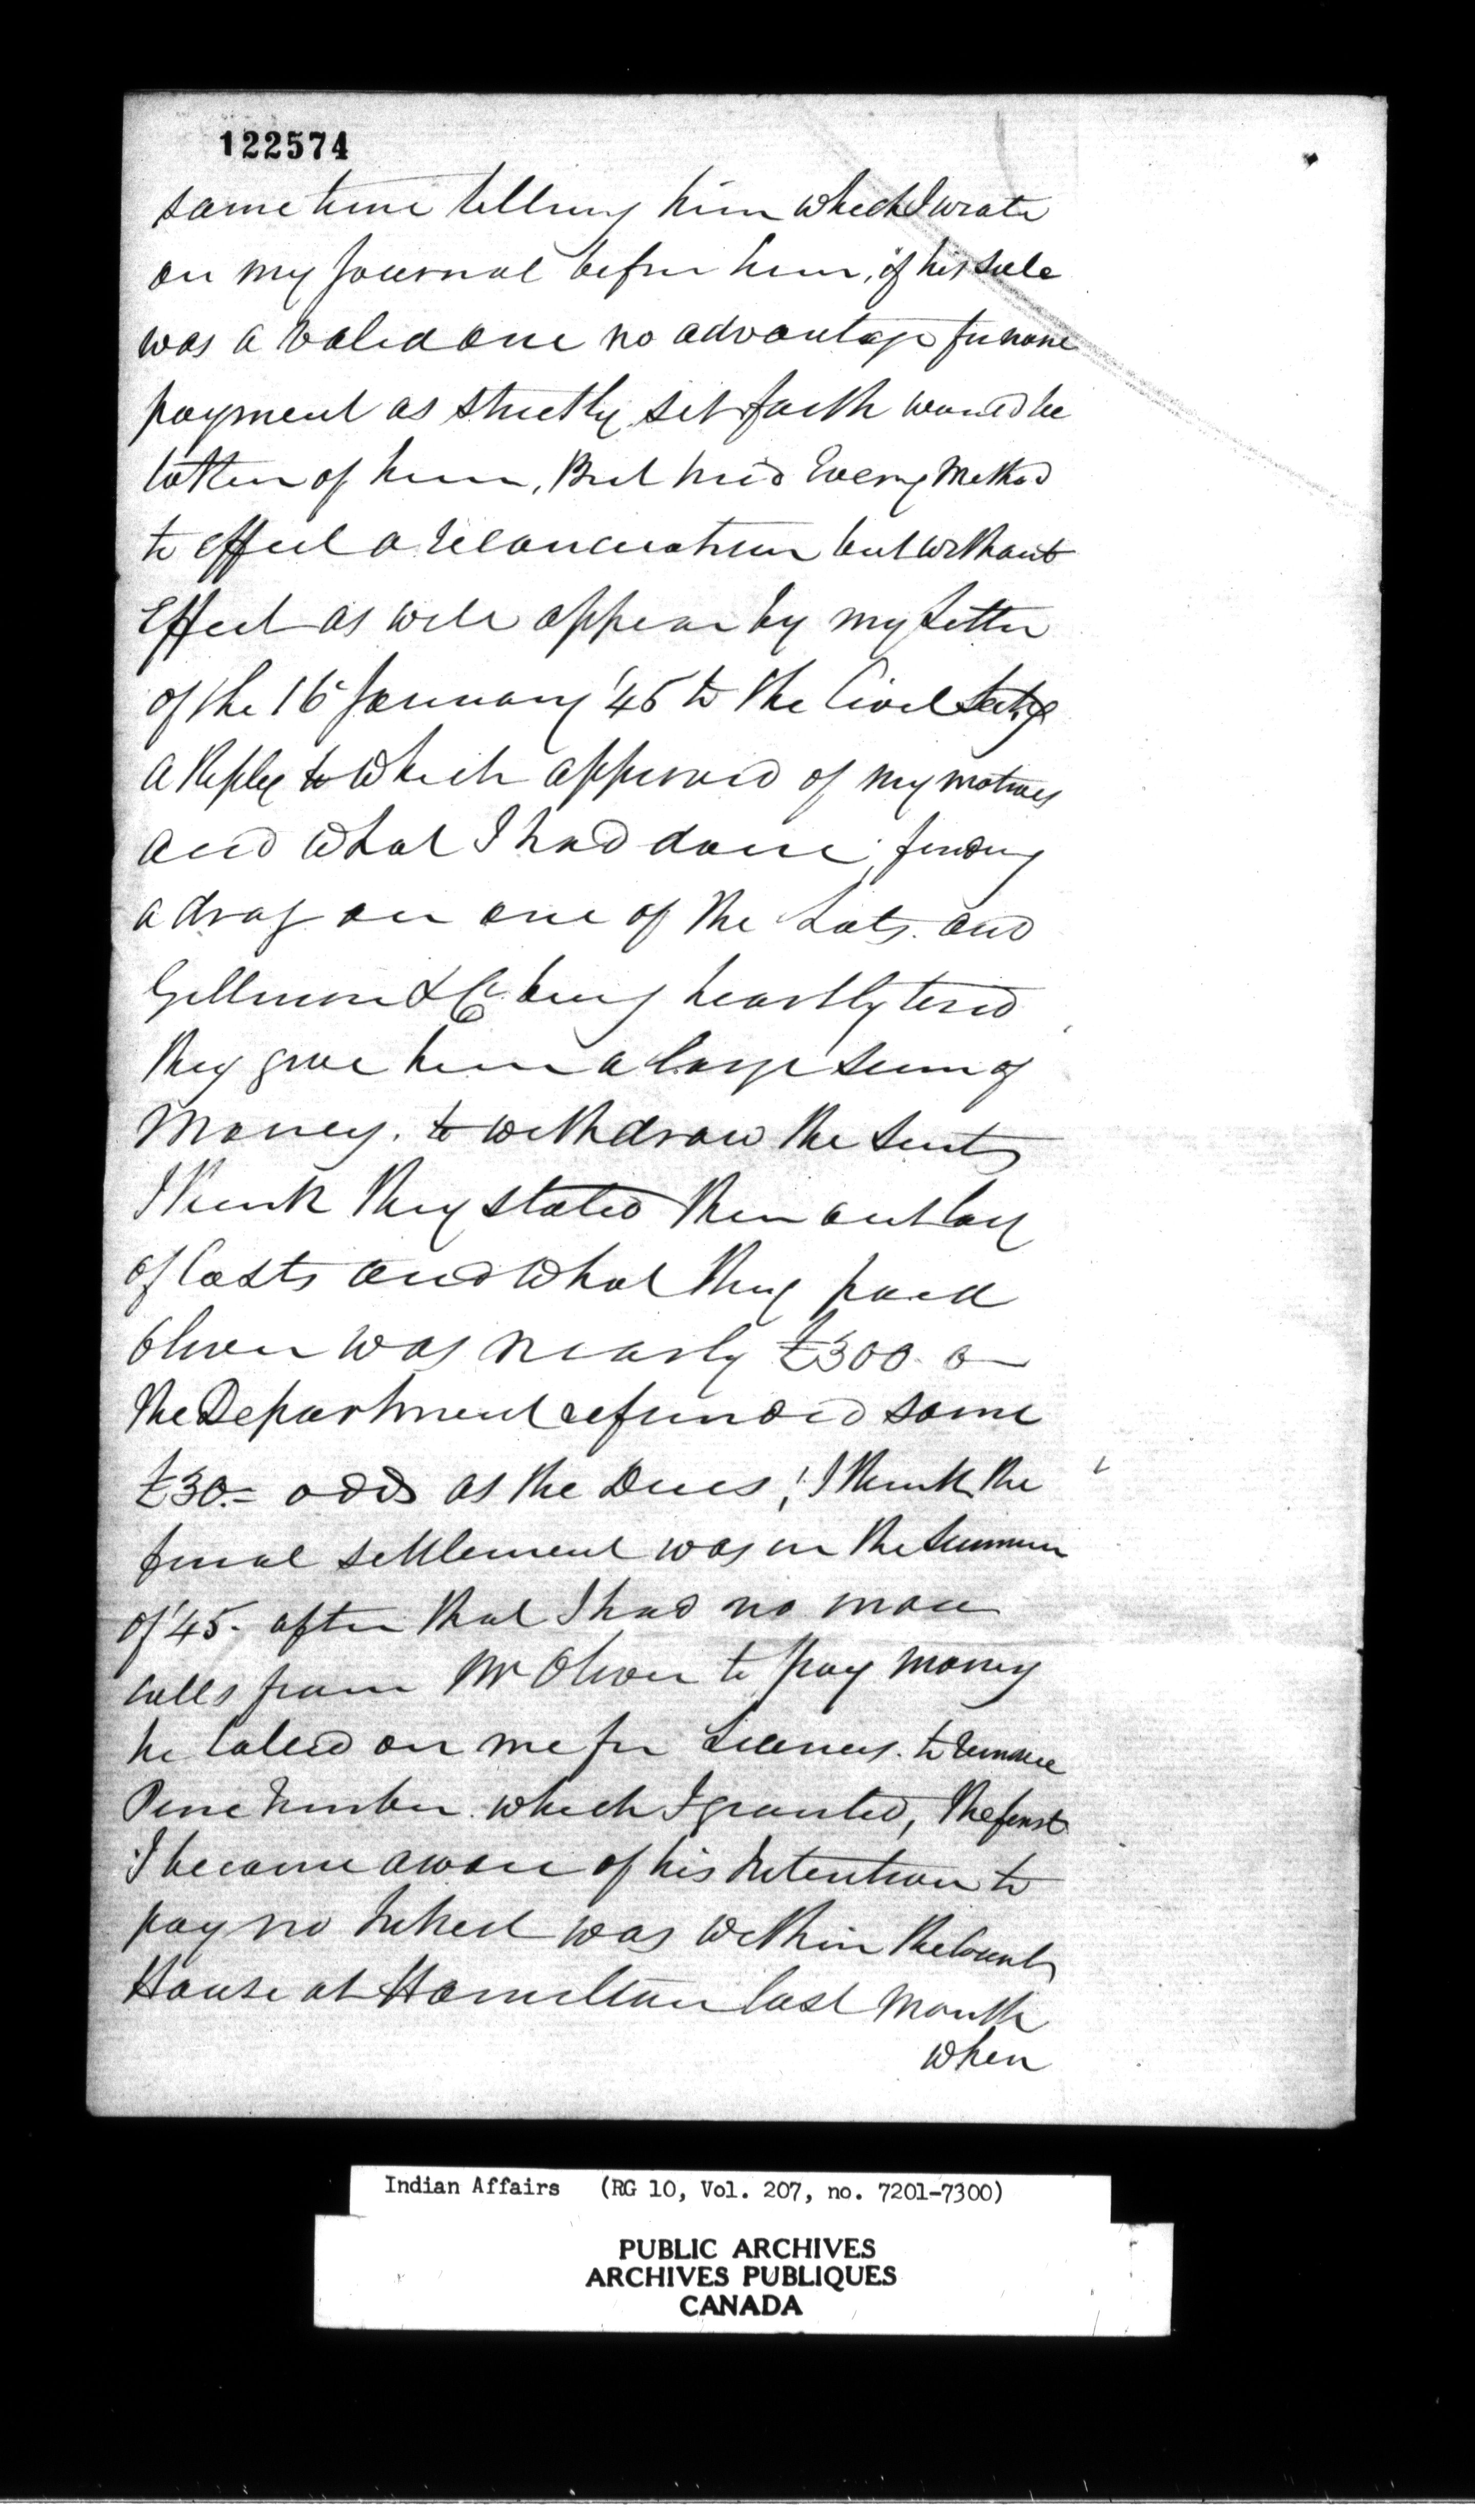 122574
same time telling him which I wrote
on my Journal before him, if his sale
was a valid one no advantage for none
payment as strictly set forth would be
taken of him, But tried Every Method
to effect a reconciliation but without
Effect as will appear by my Letter
of the 16 January '45 to the Civil Secty
a Reply to which approved of my motives
and what I had done; finding
a drag on one of the Lots and
Gillmore & Co being heartly tired
they gave him a large sum of
Money. to withdraw the suits
I think they stated their outlay
of Costs and what they paid
Oliver was nearly £300. o—
the Department refunded some
£30.= odd as the Dues; I think the
final settlement was in the Summer
of '45. after that I had no more
calls from Mr Oliver to pay money
he called on me for Licences. to remove
Pine timber which I granted, the first
I became aware of his Intention to
pay no Interest was within the Court
House at Hamilton last Month
when
Indian Affairs (RG 10, Vol. 207, no. 7201-7300)
PUBLIC ARCHIVES
ARCHIVES PUBLIQUES
CANADA